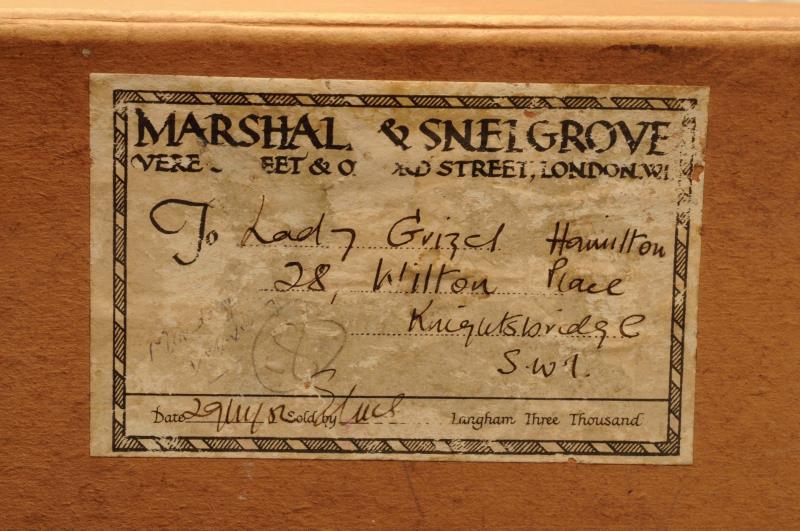 MARSHAL & SNELGROVE
VERE EET & O RD STREET, LONDON.W1
To Lady Grizel Hamilton
28, Wilton Place
Knightsbridge
S.W.1.
Date Sold by Langham Three Thousand